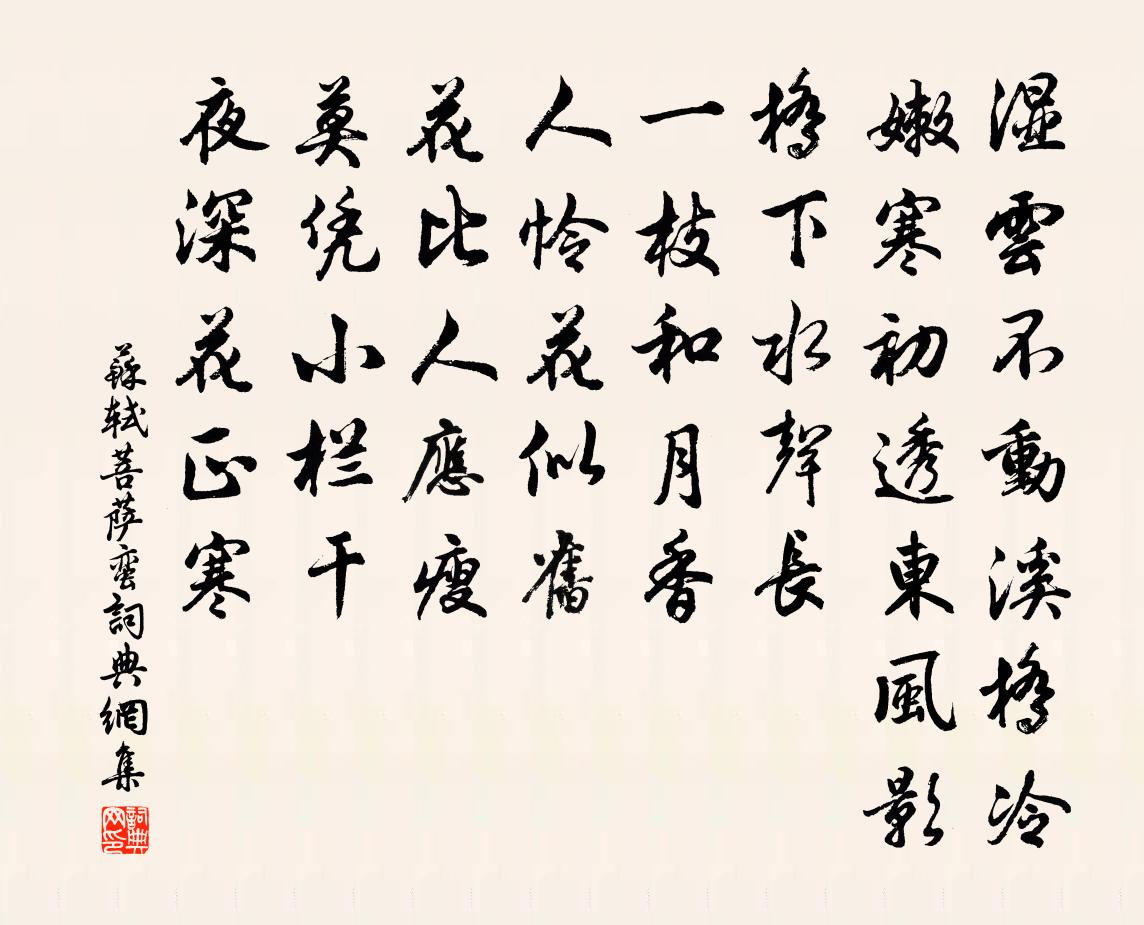 湿雲不動溪橋冷
嫩寒初透東風影
橋下水聲長
一枝和月香
人怜花似舊
花比人應瘦
莫凭小栏干
夜深花正寒
蘇軾菩薩蛮詞典網集
詞典网印